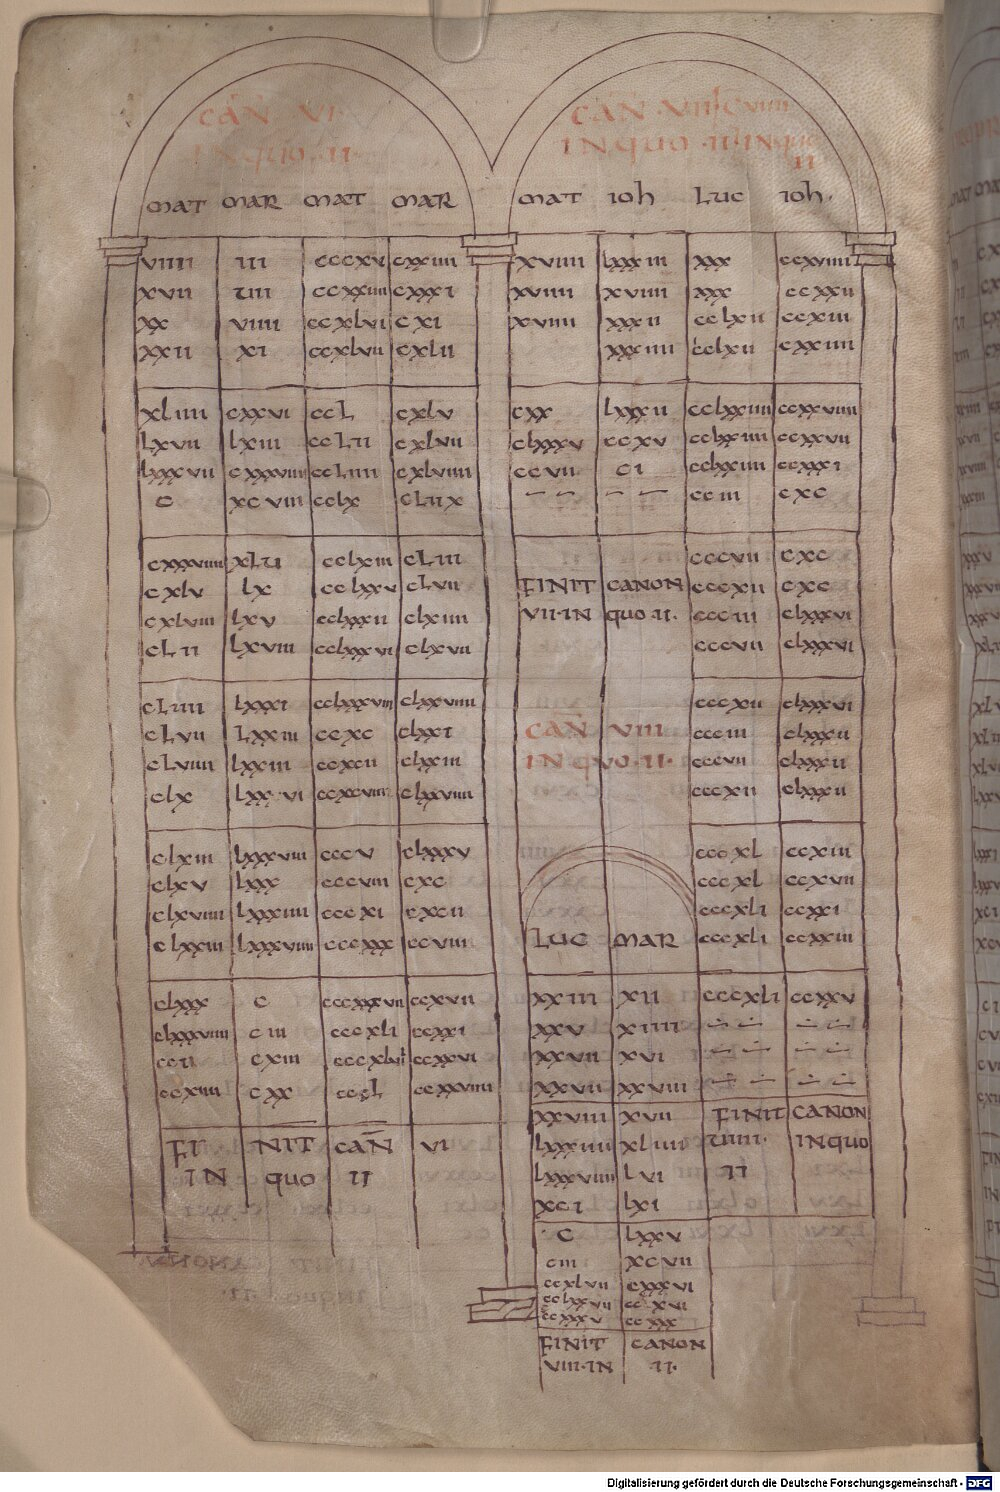 CAN VI
IN quo II
MAT MAR MAT MAR
VIIII III CCCXV CXXIIII
XVII CCXXIIII CXXXI
XX VIIII CCXLVI CXI
XXII XI CCXLVII CXLII
XLIIII CXXVI CCL CXLV
LXVII LXIII CCLII CXLVII
LXXXVII CXXXVIIII CCLIIII CXLVIIII
C XCVIII CCLX CLIIX
CXXXVIIII CCLXIII CLIII
CXLV LX CCLXXV CLVII
CXLVIII LXV CCLXXXII CLXIIII
CLII LXVIII CCLXXXVI CLXVII
CLIIII LXXXI CCLXXXVIII CLXXVIIII
CLVII LXXIII CCXC CLXXI
CLVIIII LXXIII CCXCII CLXXIII
CLX LXXXVI CCXCVIII CLXXVIIII
CLXIII LXXXVIII CCCV CLXXXV
CLXV LXXX CCCVIII CXC
CLXVIIII LXXXIIII CCCXI CXCII
CLXXIII LXXXVIIII CCCXXX CCVIII
CLXXX C CCCXXXVII CCXVII
CLXXXVIIII CIII CCCXLI CCXXI
CCII CXIII CCXXVI
CCXIIII CXX CCXXVIIII
FI NIT CAN VI
IN quo II
CAN
IN QUO II IN quo
II
MAT IOH LUC IOH
XVIIII LXXXIII XXX CCXVIIII
XVIIII XVIIII XXX CCXXII
XVIIII XXXII CCLXII CCXIII
XXXIIII CCLXII CXXIIII
CXX LXXXII CCLXXIIII CCXXVIIII
CLXXXV CCXV CCLXXIIII CCXXVII
CCVII CI CCLXXIIII CCXXXI
CCIII CXC
CCCVII CXC
FINIT CANON CCCXII CXC
VII IN quo II CCCIII CLXXXVI
CCCVII CLXXXVI
CCCXII CLXXXVI
CAN VIII CCCIII CLXXXII
IN QUO II CCCVII CLXXXII
CCCXII CLXXXII
CCCXL CCXIII
CCCXL CCXVII
CCCXLI CCXXI
LUC MAR CCCXLI CCXXIII
XXIII XII CCCXLI CCXXV
XXV XIIII
XXVII XVI
XXVII XXVIII
XXVIII XVII FINIT CANON
LXXXIIII XLIIII VIIII IN QUO
LXXXVIIII LVI II
XCI LXI
C LXXV
CIII XCVII
CCXLVII CXXXVI
CCLXXVII CCXVI
CCXXXV CCXXX
FINIT CANON
VIII IN II
Digitalisierung gefördert durch die Deutsche Forschungsgemeinschaft - DFG